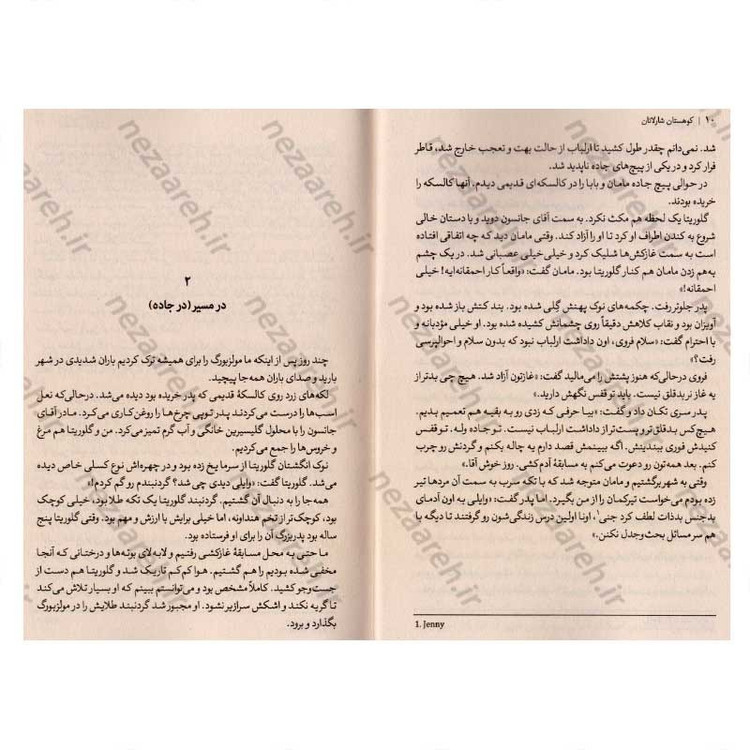 ۱۰ | کوهستان شارلاتان
شد. نمی‌دانم چقدر طول کشید تا ارلباب از حالت بهت و تعجب خارج شد، قاطر
فرار کرد و در یکی از پیچ‌های جاده ناپدید شد.
در حوالی پیچ جاده مامان و بابا را در کالسکه‌ای قدیمی دیدم. آنها کالسکه را
خریده بودند.
گلوریتا یک لحظه هم مکث نکرد. به سمت آقای جانسون دوید و با دستان خالی
شروع به کندن اطراف او کرد تا او را آزاد کند. وقتی مامان دید که چه اتفاقی افتاده
است به سمت غازکش‌ها شلیک کرد و خیلی خیلی عصبانی شد. در یک چشم
به‌هم زدن مامان هم کنار گلوریتا بود. مامان گفت: «واقعاً کار احمقانه‌ایه! خیلی
احمقانه!»
پدر جلوتر رفت. چکمه‌های نوک پهنش گِلی شده بود. بند کتش باز شده بود و
آویزان بود و نقاب کلاهش دقیقاً روی چشمانش کشیده شده بود. او خیلی مؤدبانه و
با احترام گفت: «سلام فروی، اون داداشت ارلباب نبود که بدون سلام و احوالپرسی
رفت؟»
فروی درحالی‌که هنوز پشتش را می‌مالید گفت: «غازتون آزاد شد. هیچ چی بدتر از
یه غاز نر بدقلق نیست. باید تو قفس نگهش دارید.»
پدر سری تکان داد و گفت: «بیا حرفی که زدی رو به بقیه هم تعمیم بدیم.
هیچ‌کس بدقلق‌تر و پست‌تر از داداشت ارلباب نیست. تو جاده وله. تو قفس
کنیدش فوری ببندینش. اگه ببینمش قصد دارم یه چاله بکنم و گردنش رو چرب
کنم. بعد همه‌تون رو دعوت می‌کنم به مسابقهٔ آدم‌کشی. روز خوش آقا.»
وقتی به شهر برگشتیم و مامان متوجه شد که با تکه سرب به سمت آن مردها تیر
زده بودم می‌خواست تیرکمان را از من بگیرد. اما پدر گفت: «وایلی به اون آدمای
بدجنس بدذات لطف کرد جنی۱، اونا اولین درس زندگی‌شون رو گرفتند تا دیگه با
هم سر مسائل بحث‌وجدل نکنن.»
1. Jenny
۲
در مسیر (در جاده)
چند روز پس از اینکه ما مولزبورگ را برای همیشه ترک کردیم باران شدیدی در شهر
بارید و صدای باران همه‌جا پیچید.
لکه‌های زرد روی کالسکهٔ قدیمی که پدر خریده بود دیده می‌شد. درحالی‌که نعل
اسب‌ها را درست می‌کردند پدر توپی چرخ‌ها را روغن‌کاری می‌کرد. مادر آقای
جانسون را با محلول گلیسیرین خانگی و آب گرم تمیز می‌کرد. من و گلوریتا هم مرغ
و خروس‌ها را جمع می‌کردیم.
نوک انگشتان گلوریتا از سرما یخ زده بود و در چهره‌اش نوع کسلی خاص دیده
می‌شد. گلوریتا گفت: «وایلی دیدی چی شد؟ گردنبندم رو گم کردم!»
همه‌جا را به دنبال آن گشتیم. گردنبند گلوریتا یک تکه طلا بود، خیلی کوچک
بود، کوچک‌تر از تخم هندوانه، اما خیلی برایش با ارزش و مهم بود. وقتی گلوریتا پنج
ساله بود پدربزرگ آن را برای او فرستاده بود.
ما حتی به محل مسابقهٔ غازکشی رفتیم و لابه‌لای بوته‌ها و درختانی که آنجا
مخفی شده بودیم را هم گشتیم. هوا کم‌کم تاریک شد و گلوریتا هم دست از
جست‌وجو کشید. کاملاً مشخص بود و می‌توانستم ببینم که او بسیار تلاش می‌کند
تا گریه نکند و اشکش سرازیر نشود. او مجبور شد گردنبند طلایش را در مولزبورگ
بگذارد و برود.
nezaareh.ir